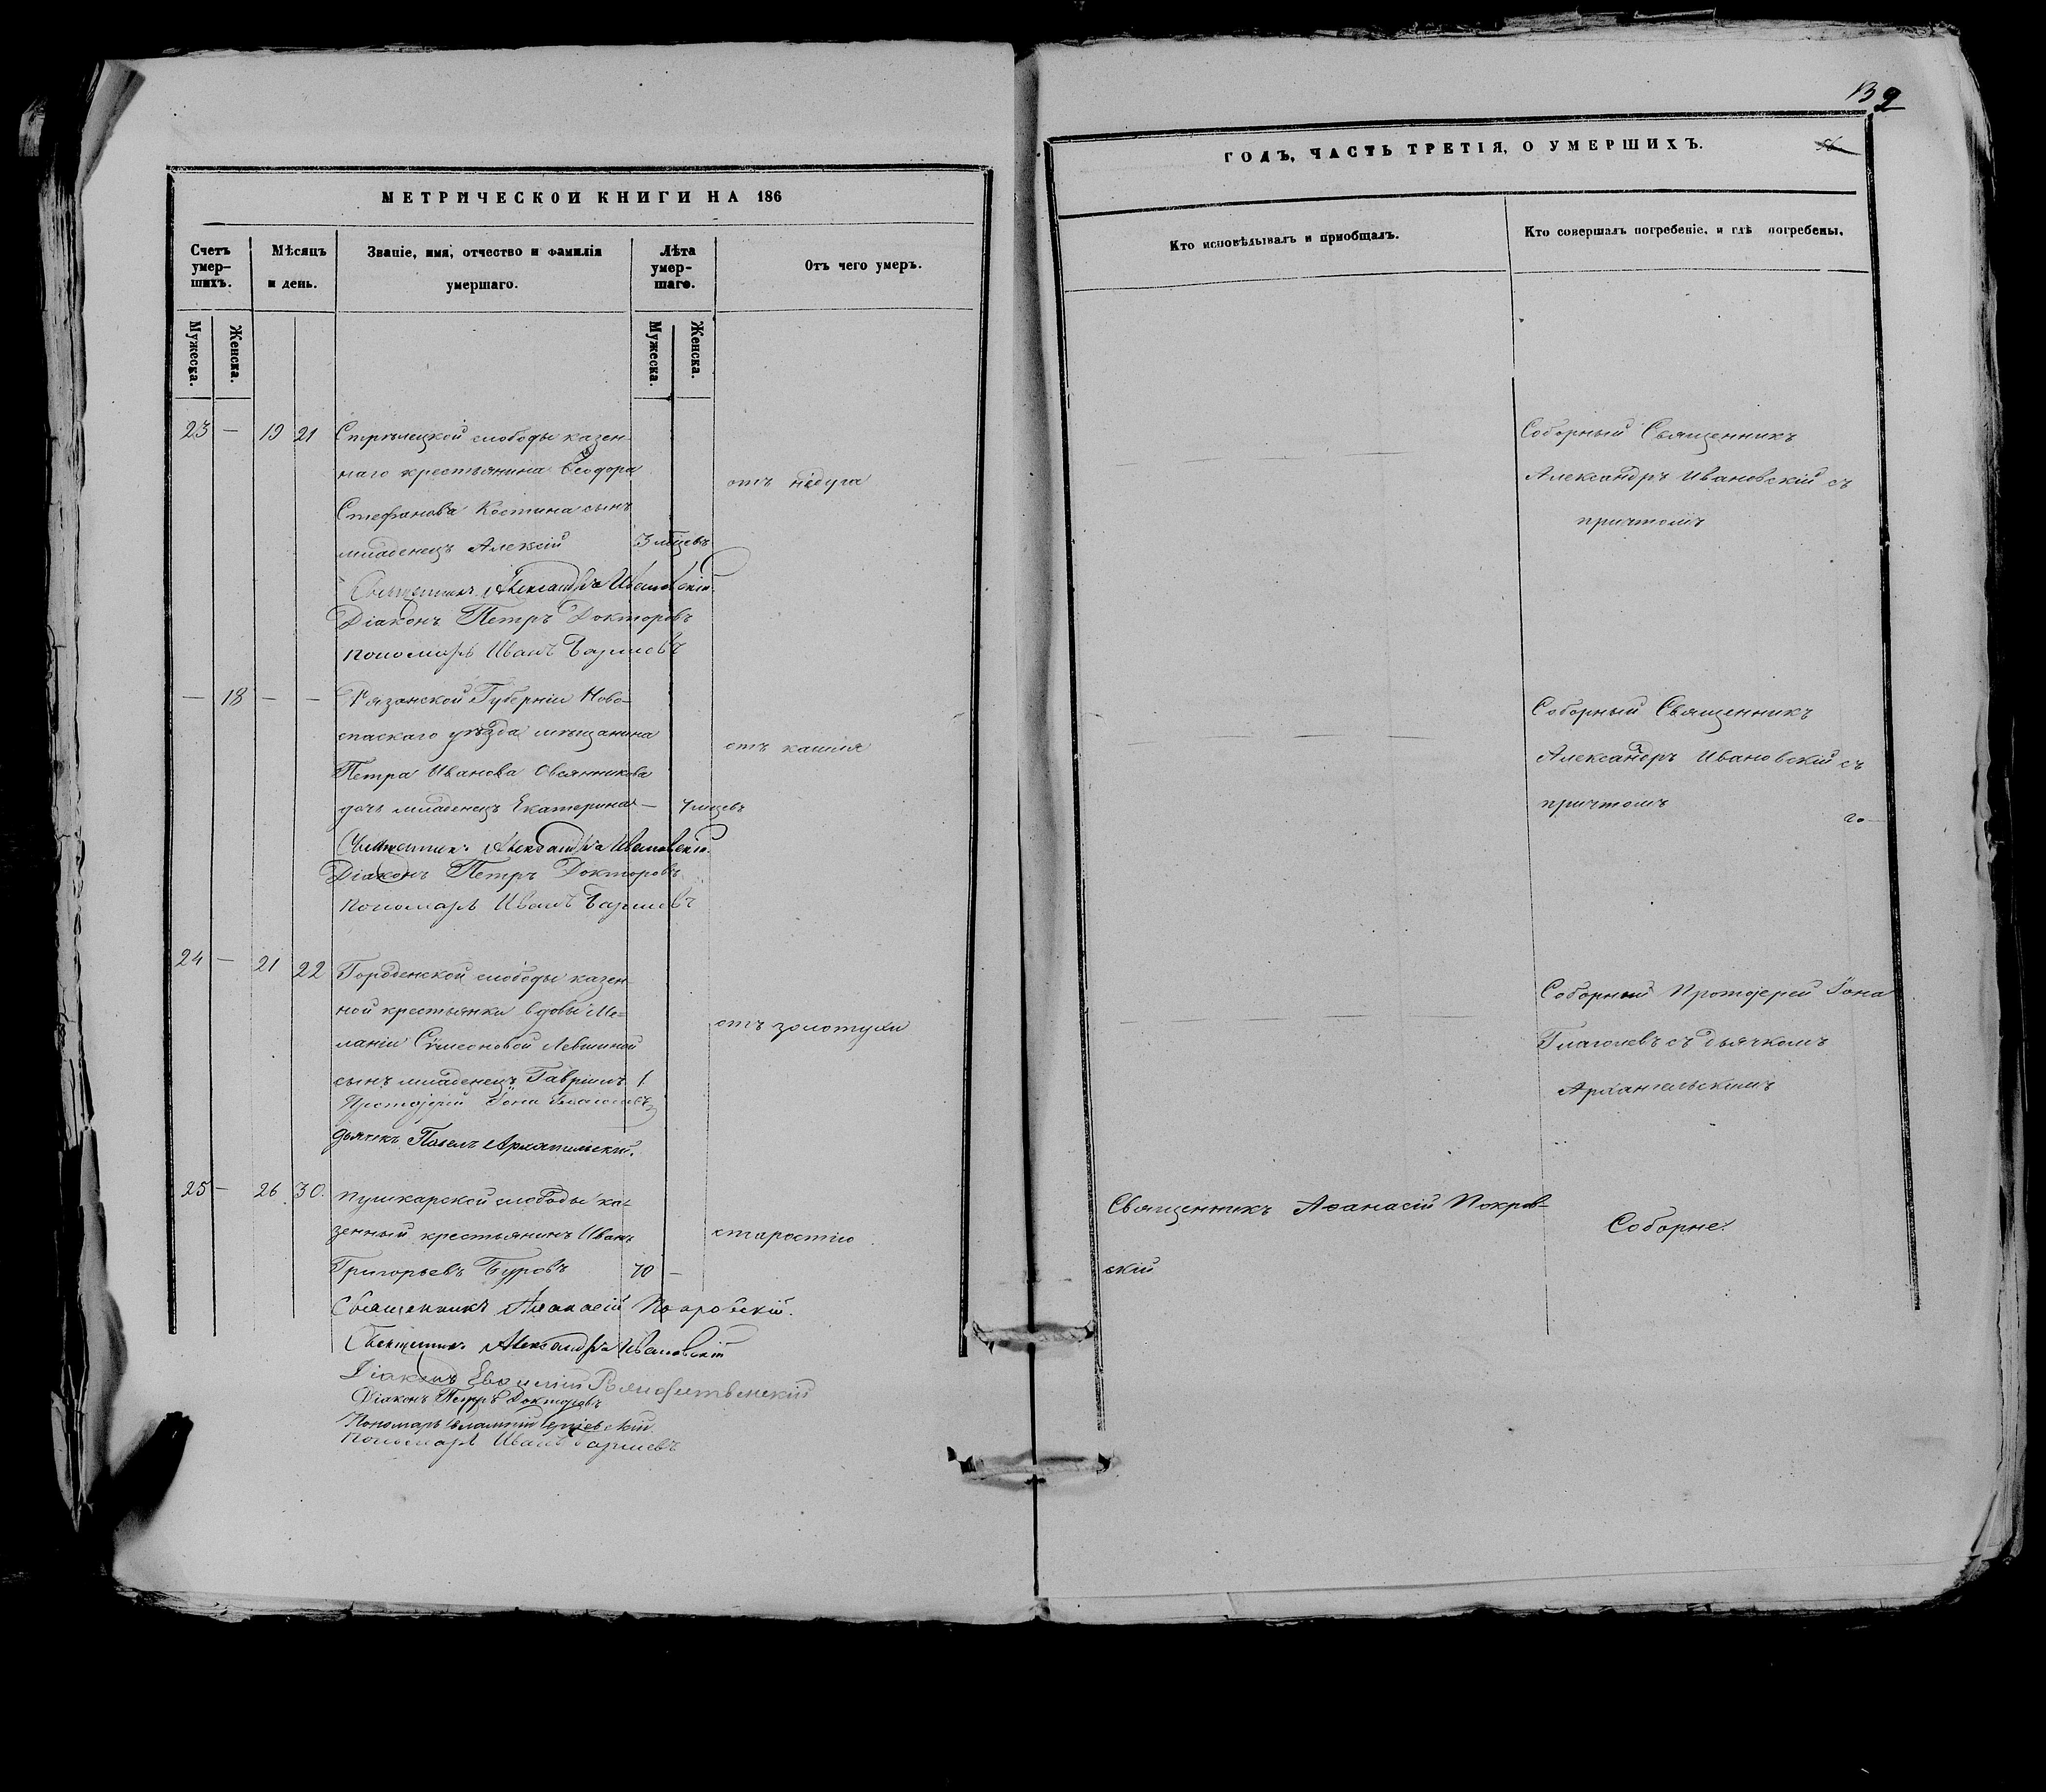 МЕТРИЧЕСКОЙ КНИГИ НА 186
Счетъ умер-
шихъ.
Мѣсяцъ
и день.
Званіе, имя, отчество и фамилія
умершаго.
Лѣта
умер-
шаго.
Отъ чего умеръ.
Мужеска.
Женска.
Мужеска.
Женска.
23 — 19 21 Стрѣлецкой слободы казен-
наго крестьянина Ѳеодора
отъ недуга
Стефанова Костина сынъ
младенецъ Алексій 3 мѣцевъ
Священникъ Александръ Ивановскій
Діаконъ Петръ Докторовъ
Пономарь Иванъ
— 18 — — Рязанской Губерніи Ново-
спаскаго уѣзда мѣщанина
отъ кашля
Петра Иванова Овсянникова
дочь младенецъ Екатерина —
Священникъ Александръ Ивановскій
Діаконъ Петръ Докторовъ
Пономарь Иванъ
24 — 21 22 Городенской слободы казен-
ной крестьянки вдовы Ме-
отъ золотухи
ланіи Сѵмеоновой Левшиной
сынъ младенецъ Гавріилъ 1
Протоіерей Іона Глаголевъ
дьячекъ Павелъ Архангельскій.
25 — 26 30. Пушкарской слободы ка-
зенный крестьянинъ Иванъ
старостію
Григорьевъ Буровъ 70 —
Священникъ Аѳанасій Покровскій.
Священникъ Александръ Ивановскій
Діаконъ
Діаконъ Петръ Докторовъ
Пономарь
Пономарь Иванъ
ГОДЪ, ЧАСТЬ ТРЕТІЯ, О УМЕРШИХЪ.
Кто исповѣдывалъ и пріобщалъ.
Кто совершалъ погребеніе, и гдѣ погребены.
Соборный Священникъ
Александръ Ивановскій съ
причтомъ
Соборный Священникъ
Александръ Ивановскій съ
причтомъ
Соборный Протоіерей Іона
Глаголевъ съ дьячкомъ
Архангельскимъ
Священникъ Аѳанасій Покров-
скій
Соборне.